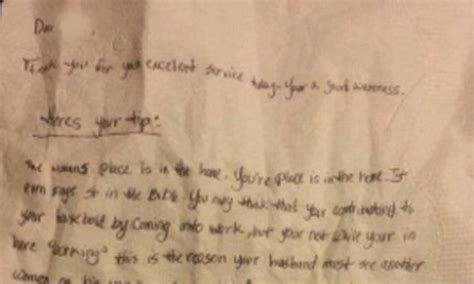 De
Thank you for your excellent service today. Your a good waitress.
Heres your tip:
The womans place is in the home. You're place is in the home. It
even says so in the Bible. You may think that your contributing to
your household by coming into work, but your not. While your in
here "working" this is the reason your husband must see another
woman on his way